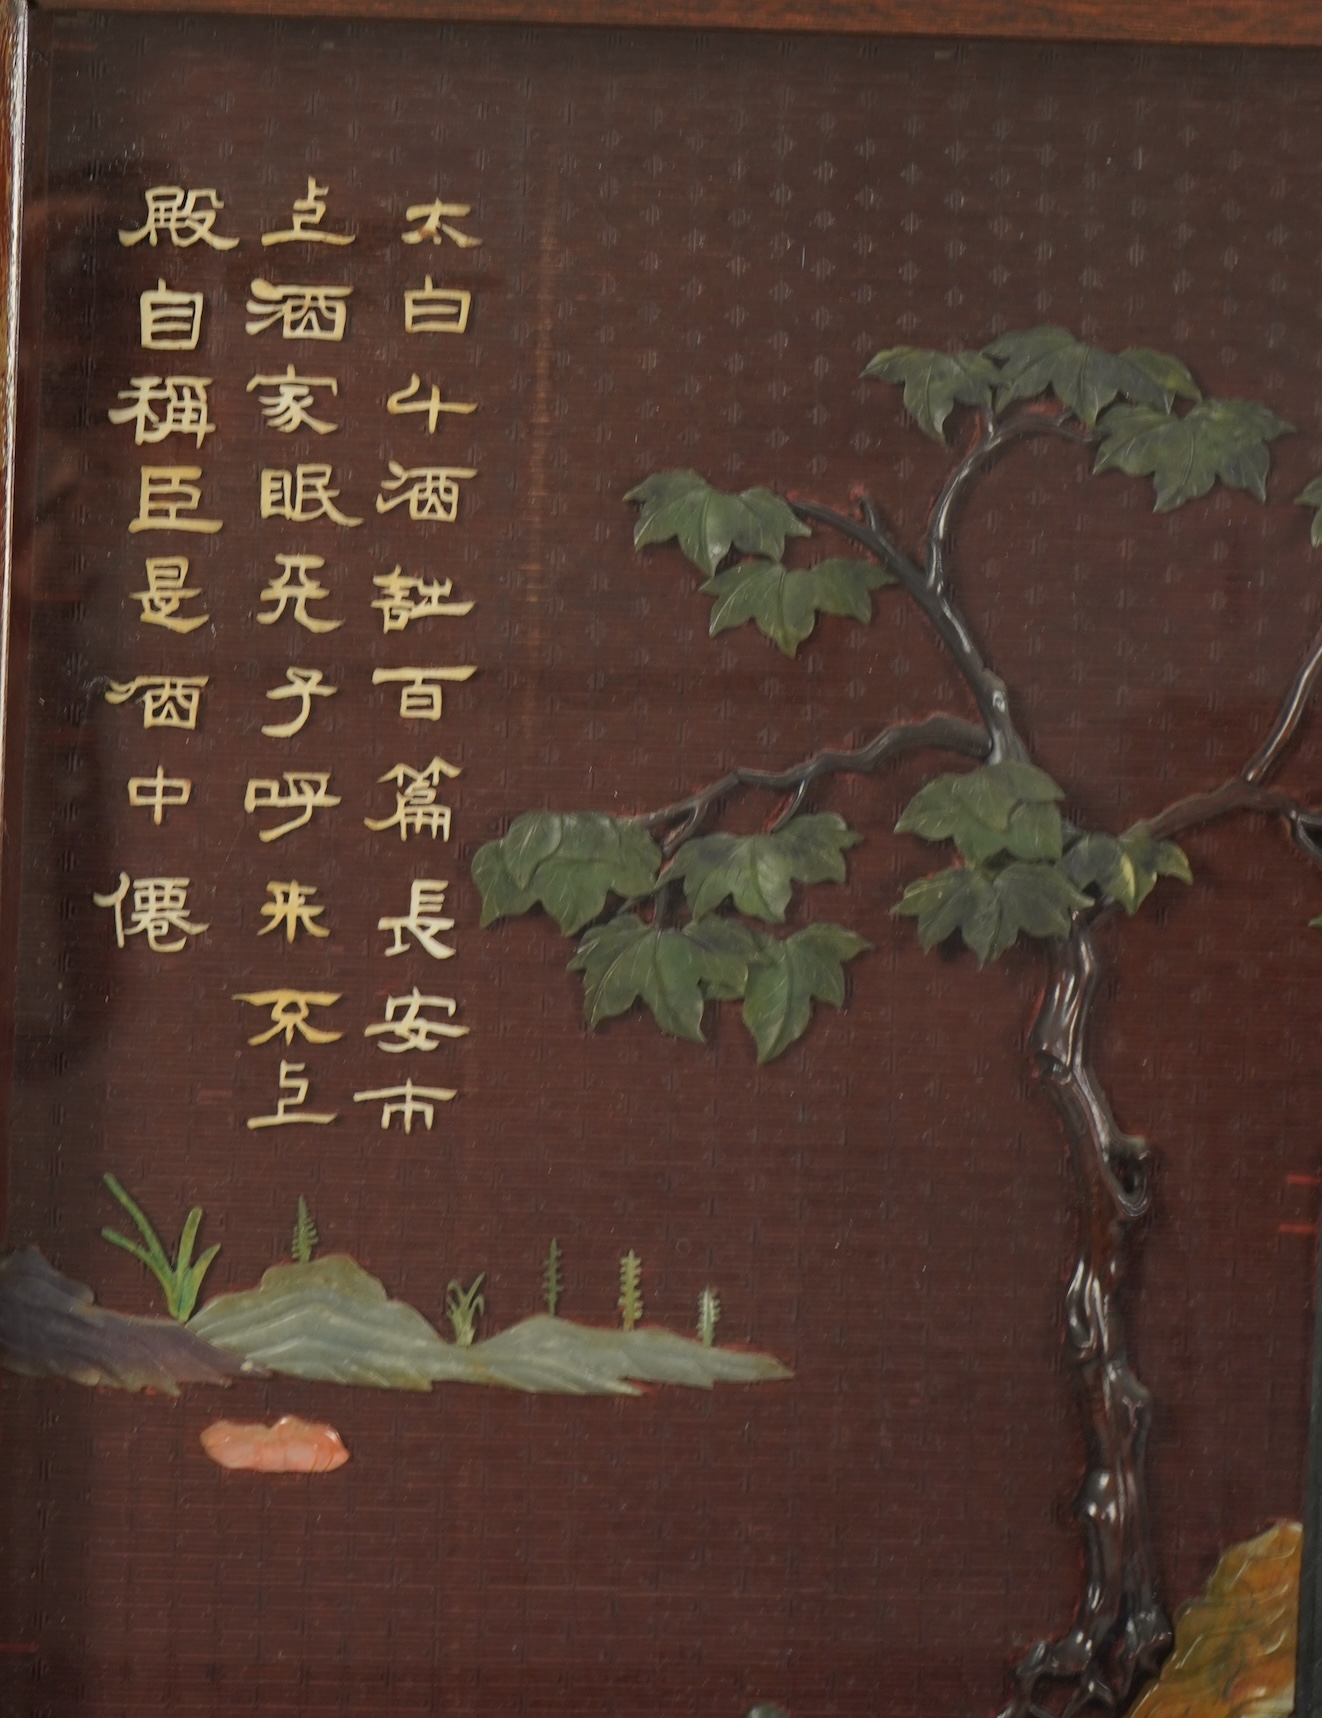 太白斗酒詩百篇長安市
上酒家眠天子呼来不上
殿自稱臣是酒中僊